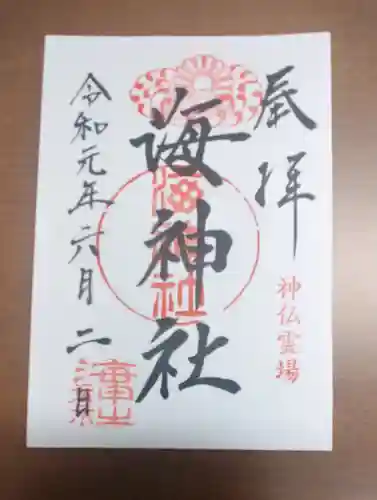 奉拝
神仏霊場
海神社
令和元年六月二日